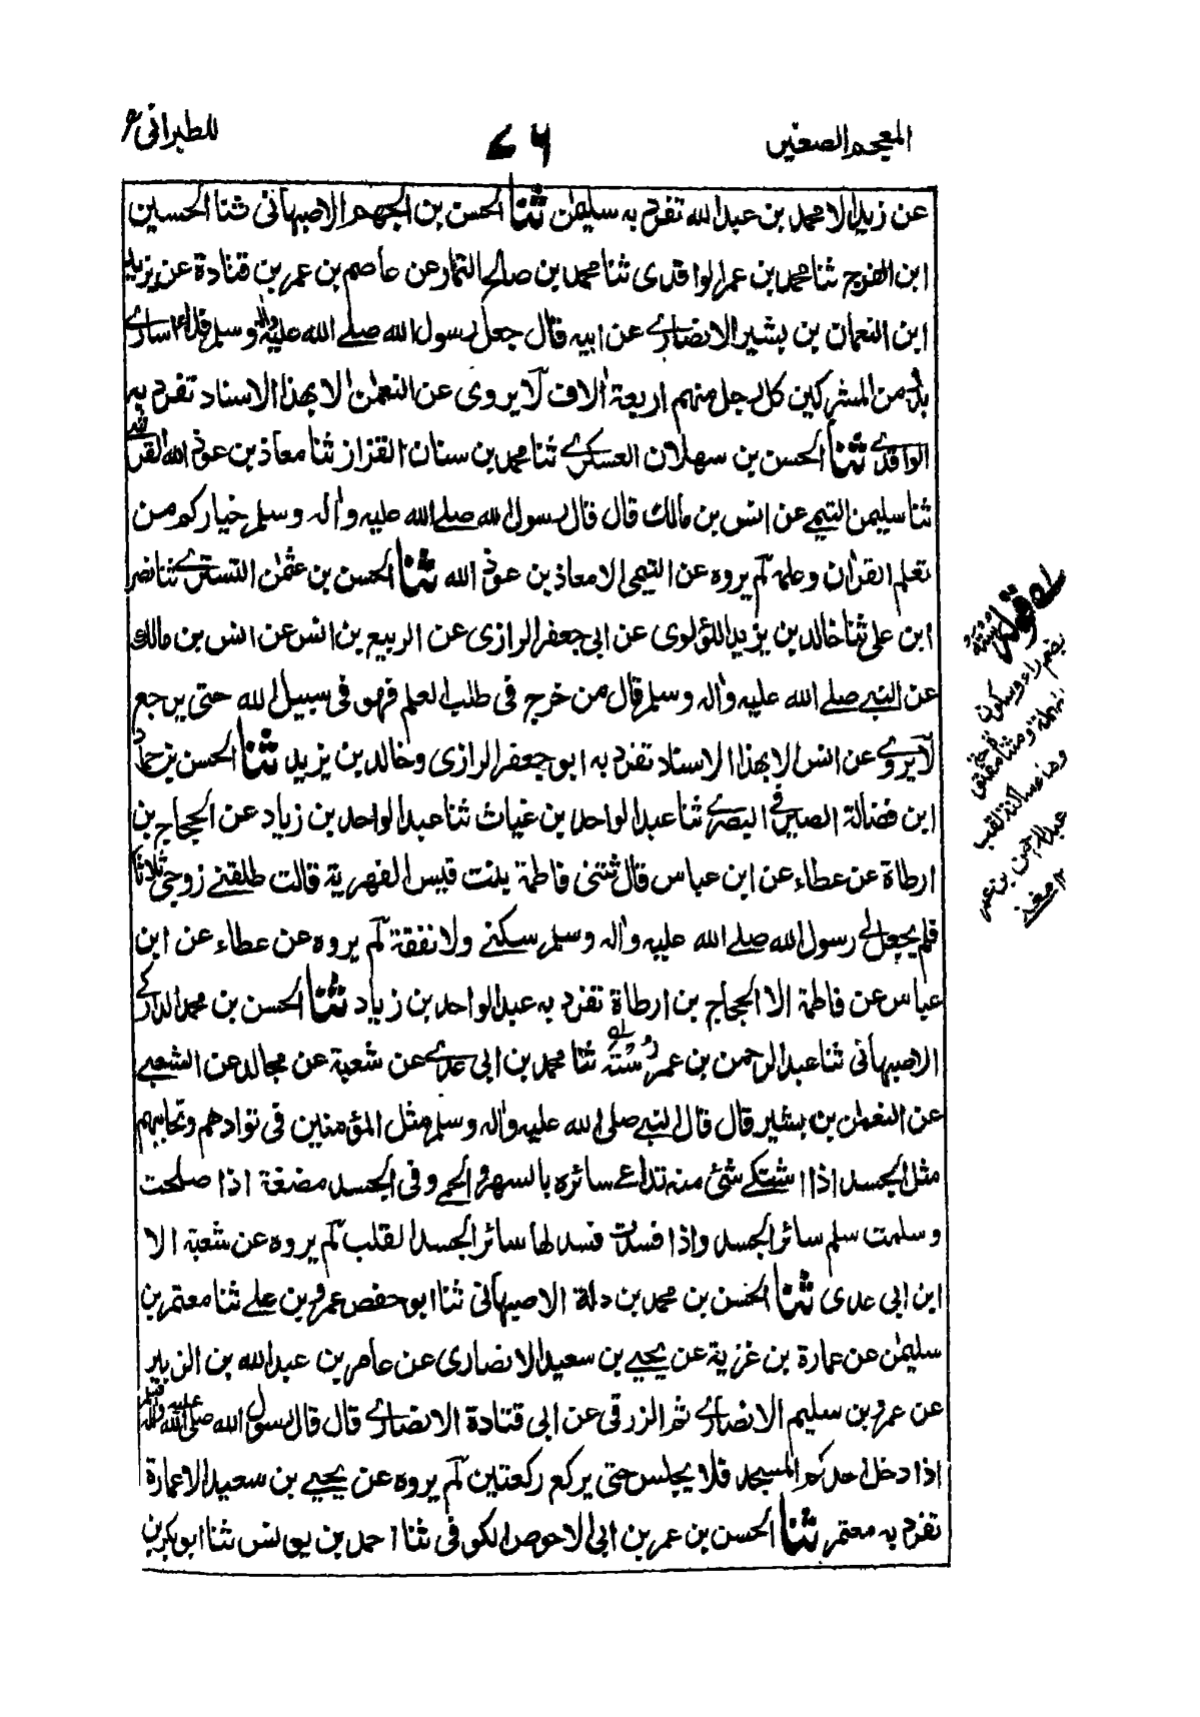 المعجم الصغير
۷۶
للطبرانی
عن زيد الا محمد بن عبد الله تفرد به سليمٰن ثنا الحسن بن الجهم الاصبهانی ثنا الحسين
ابن الفرج ثنا محمد بن عمر الواقدی ثنا محمد بن صالح التمار عن عاصم بن عمر بن قتادة عن يزيد
ابن النعمان بن بشير الانصاری عن ابيه قال جعل رسول الله صلے الله عليه واٰله وسلم فداء اسارے
بدر من المشركين كل رجل منهم اربعة اٰلاف لا يروی عن النعمٰن الا بهذا الاسناد تفرد به
الواقدے ثنا الحسن بن سهلان العسكرے ثنا محمد بن سنان القزاز ثنا معاذ بن عوذ الله القرشے
ثنا سليمن التيمے عن انس بن مالك قال قال رسول الله صلے الله عليه واٰله وسلم خياركم من
تعلم القراٰن وعلمه لم يروه عن التيمی الا معاذ بن عوذ الله ثنا الحسن بن عثمٰن التسترے ثنا نصر
ابن علی ثنا خالد بن يزيد اللؤلوی عن ابی جعفر الرازی عن الربيع بن انس عن انس بن مالك
عن النبے صلے الله عليه واٰله وسلم قال من خرج فی طلب العلم فهو فی سبيل الله حتی يرجع
لا يروے عن انس الا بهذا الاسناد تفرد به ابو جعفر الرازی وخالد بن يزيد ثنا الحسن بن حماد
ابن فضالة الصيرفے البصرے ثنا عبد الواحد بن غياث ثنا عبد الواحد بن زياد عن الحجاج بن
ارطاة عن عطاء عن ابن عباس قال ثتنی فاطمة بنت قيس الفهرية قالت طلقنے زوجی ثلاثا
فلم يجعل لے رسول الله صلے الله عليه واٰله وسلم سكنے ولا نفقة لم يروه عن عطاء عن ابن
عباس عن فاطمة الا الحجاج بن ارطاة تفرد به عبد الواحد بن زياد ثنا الحسن بن محمد الدارکے
الاصبهانی ثنا عبد الرحمن بن عمر رُسْتَه ثنا محمد بن ابی عدے عن شعبة عن مجالد عن الشعبے
عن النعمٰن بن بشير قال قال النبے صلی الله عليه واٰله وسلم مثل المؤمنين فی توادهم وتحاببهم
مثل الجسد اذا اشتكے شئ منه تداعے سائره بالسهر والحمے وفی الجسد مضغة اذا صلحت
وسلمت سلم سائر الجسد واذا فسدت فسد لها سائر الجسد القلب لم يروه عن شعبة الا
ابن ابی عدی ثنا الحسن بن محمد بن دلة الاصبهانی ثنا ابو حفص عمرو بن علے ثنا معتمر بن
سليمٰن عن عمارة بن غزية عن يحيے بن سعيد الانصاری عن عامر بن عبد الله بن الزبير
عن عمرو بن سليم الانصارے ثم الزرقی عن ابی قتادة الانصارے قال قال رسول الله صلی الله عليه واٰله وسلم
اذا دخل احدكم المسجد فلا يجلس حتی يركع ركعتين لم يروه عن يحيے بن سعيد الا عمارة
تفرد به معتمر ثنا الحسن بن عمر بن ابی الاحوص الكوفی ثنا احمد بن يونس ثنا ابو بكر بن
له قوله رسته
بضم راء وسكون
مهملة وفتح مثناة فوق
وهاء ساكنة لقب
عبد الرحمن بن عمر
۱۲ مغنے